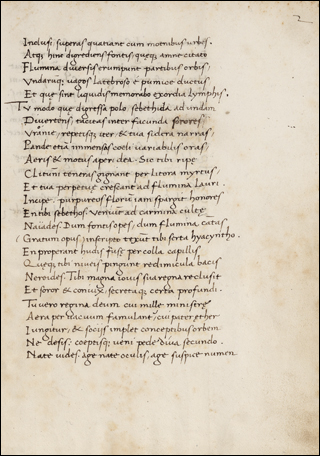 2
Inclusi. superas quatiant cum motibus urbes.
Atq; hinc digrediens fontis, queq; amne citato
Flumina diversis erumpunt partibus orbis,
Undarumq; vagos latebroso e pumice ductus
Et que sint liquidis memorabo exordia lymphis.
Tu modo que digressa polo, sebethida ad undam
Divertens, taceas inter facunda sorores
Uranie, repetisq; iter, & tua sidera narras,
Pande etiam immensas coeli variabilis oras
Aeris & motus aperi dea. Sic tibi ripe
Clituni teneras gignant per litora myrtus,
Et tua perpetuis crescant ad flumina lauri.
Incipe. purpureos florum iam spargit honores
En tibi sebethos. Veniunt ad carmina culte
Naiades. Dum fontis opes, dum flumina cantas
Gratum opus inscripto texit tibi serta hyacyntho.
En properant hudis fuse per colla capillis
Queq; tibi niveis pingunt redimicula bacis
Nereides. Tibi magna iovis sua regna reclusit
Et soror & coniunx, secretaq; certa profundi.
Tu vero regina deum cui mille ministre
Aera per vacuum famulant, cui pater ether
Iungitur, & sociis implet conceptibus orbem
Ne desis: coeptisq; veni pede diva secundo.
Nate vides: age nate oculis, age suspice numen